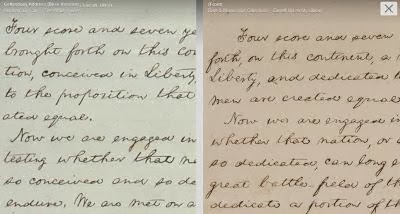 Gettysburg Address
Four score and seven ye
brought forth on this con
tion, conceived in Liberty,
to the proposition that
ated equal.
Now we are engaged in
testing whether that na
so conceived and so de
endure. We are met on a
Four score and seven
forth, on this continent, a
Liberty, and dedicated to
men are created equal
Now we are engaged in
whether that nation, or a
so dedicated, can long
great battle field of th
dedicate a portion of th